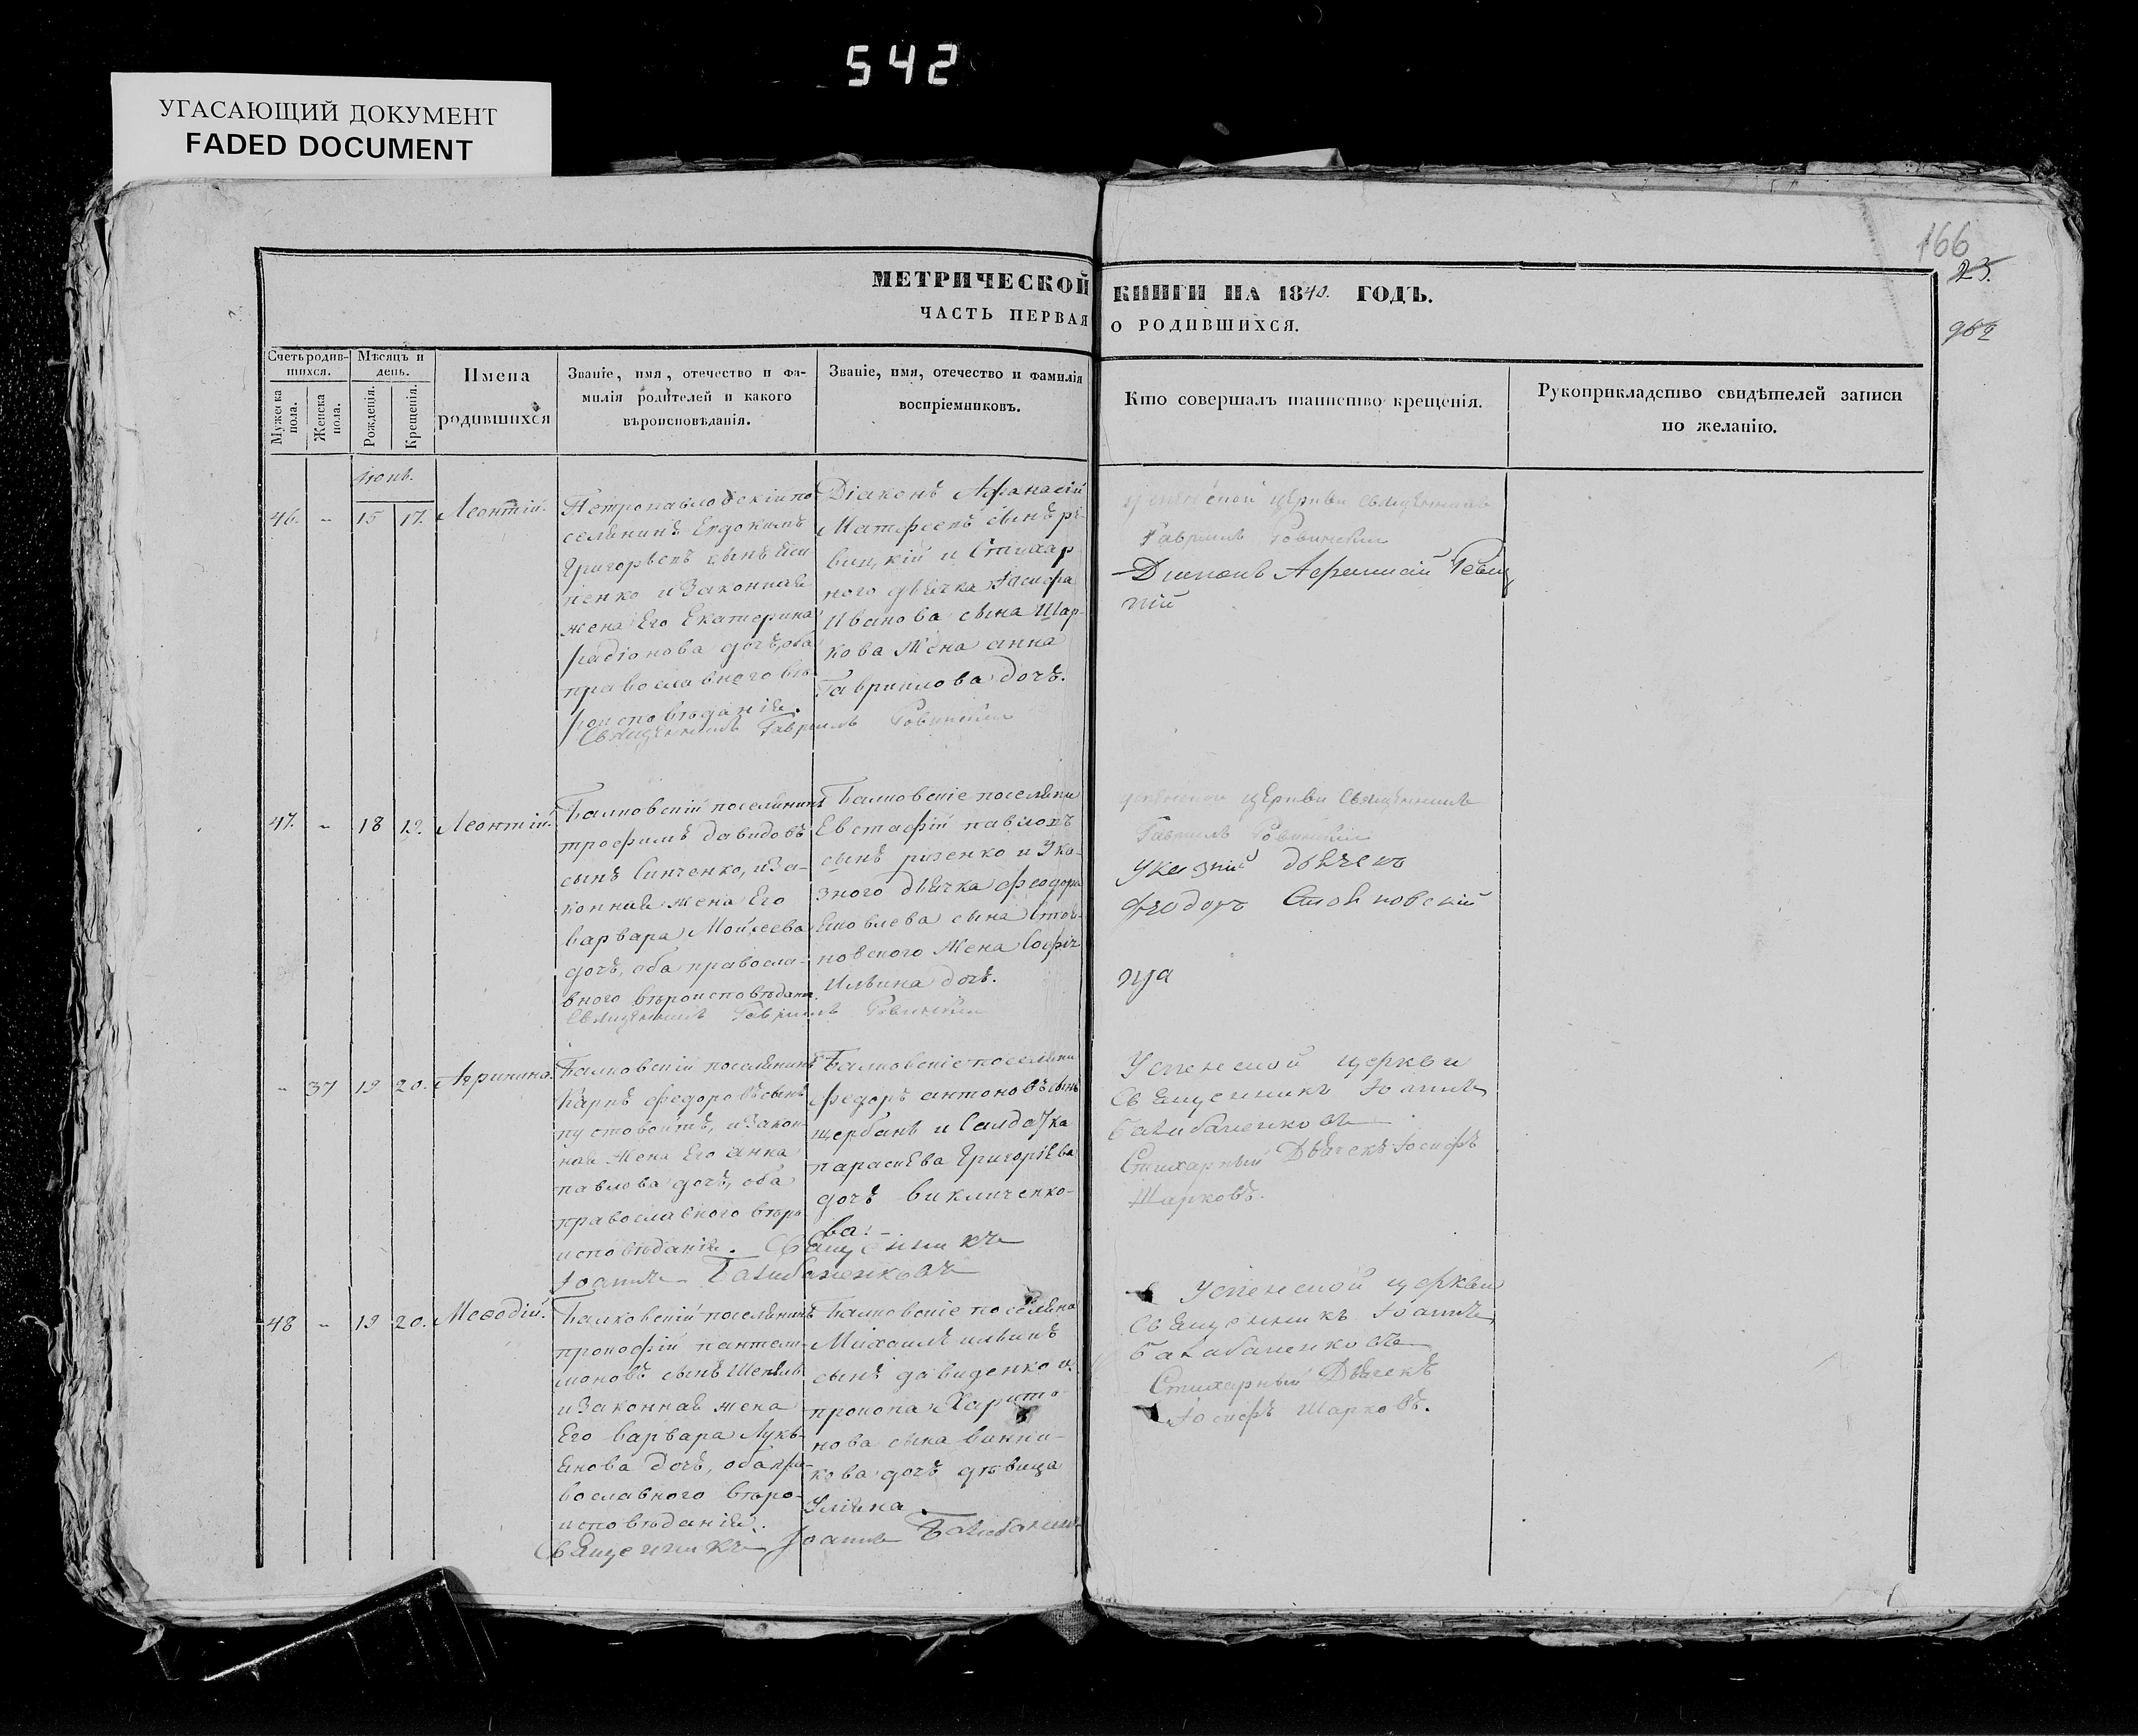 542
УГАСАЮЩИЙ ДОКУМЕНТ
FADED DOCUMENT
166
23.
962
МЕТРИЧЕСКОЙ КНИГИ НА 1840. ГОДЪ.
ЧАСТЬ ПЕРВАЯ О РОДИВШИХСЯ.
Счетъ родив-
шихся.
Мужеска пола.
Женска пола.
Мѣсяцъ и
день.
Рожденія.
Крещенія.
Имена
родившихся
Званіе, имя, отечество и фа-
милія родителей и какого
вѣроисповѣданія.
Званіе, имя, отечество и фамилія
воспріемниковъ.
Кто совершалъ таинство крещенія.
Рукоприкладство свидѣтелей записи
по желанію.
Іюнь.
46. - 15 17. Леонтій.
Петропавловскій по
селянинъ Евдокимъ
Григорьевъ сынъ
ненко и Законная
жена Его Екатерина
радіонова дочь, оба
православного вѣ
роисповѣданія.
Священникъ Гавріилъ Ровинскій
Діаконъ Афанасій
Матфеевъ сынъ ре-
виц,кій и Стихар
ного дьячка Іосифа
Иванова сына Шар-
кова жена анна
Гавриилова дочь.
Успенской церкви священникъ
Гавріилъ Ровинскій
Діяконъ Афанасій Ревиц
кій
47. - 18 19. Леонтій.
Балковскій поселянинъ
трофимъ давидовъ
сынъ Синченко, и За-
конная жена Его
варвара Мойсеева
дочь, оба правосла-
вного вѣроисповѣданія.
Священникъ Гавріилъ Ровинскій
Балковскіе поселяни
Евстафій павловъ
сынъ рѣзенко и Ука-
зного дьячка феодора
Яковлева сына Стой-
новского Жена Софія
Ильина дочь.
Успенской церкви Священникъ
Гавріилъ Ровинскій
Указный дьячекъ
Феодоръ Стойновскій
- 37 19 20. Агрипина.
Балковскій поселянинъ
Карпъ федоровъ сынъ
пустовойтъ, и Закон-
ная Жена Его анна
павлова дочь, оба
православного вѣро
исповѣданія. Священникъ
Іоаннъ Балабаненковъ
Балковскіе поселяни
федоръ антоновъ сынъ
щербанъ и Салдатка
параскева Григоріева
дочь викличенко-
ва. -
Успенской церкви
Священникъ Іоаннъ
Балабаненковъ
Стихарный Дьячекъ Іосифъ
Шарковъ.
48 - 19 20. Меѳодій.
Балковскій поселянинъ
прокофій пантели-
моновъ сынъ
и Законная жена
Его варвара Лукь-
янова дочь, оба пра-
вославного вѣро-
исповѣданія.
Священникъ Іоаннъ Балабаненко
Балковскіе поселяна
Михаилъ ильинъ
сынъ давиденко и
прокопа Харито-
нова сына винни-
кова дочь дѣвица
Уліяна.
Успенской церкви
Священникъ Іоаннъ
Балабаненковъ
Стихарный Дьячекъ
Іосифъ Шарковъ.